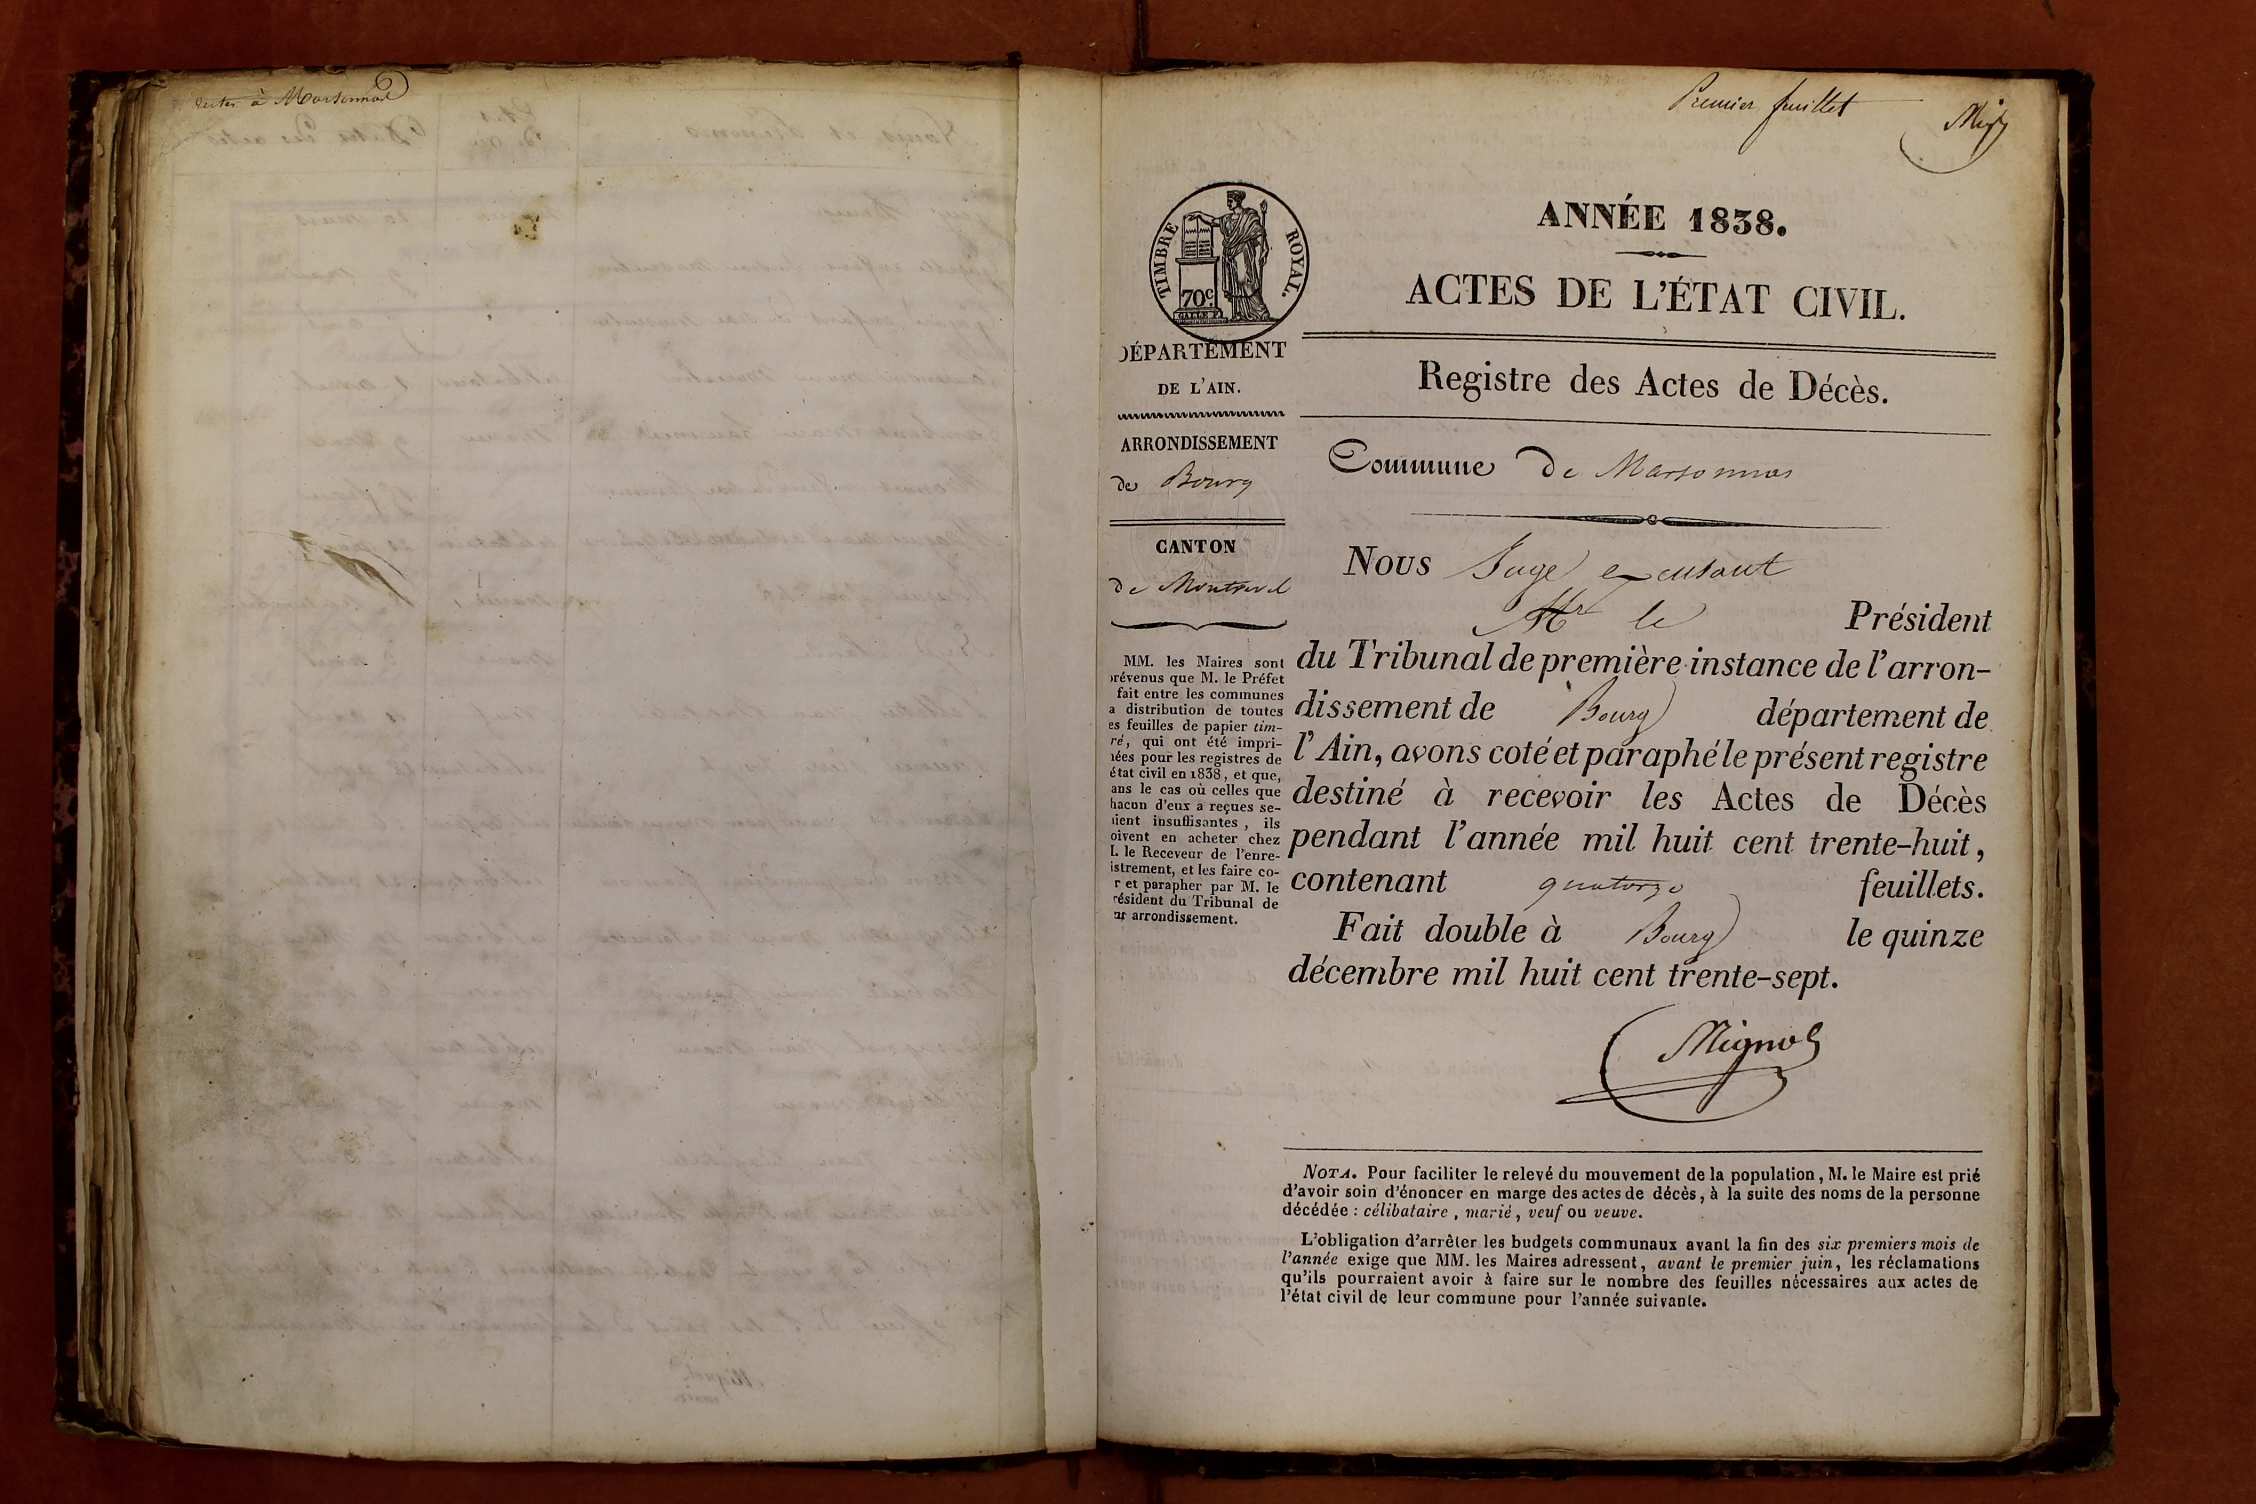 à Marsonnas
Premier feuillet
TIMBRE ROYAL.
70c.
ANNÉE 1838.
ACTES DE L'ÉTAT CIVIL.
Registre des Actes de Décès.
Commune de Marsonnas
DÉPARTEMENT
DE L'AIN.
ARRONDISSEMENT
de Bourg
CANTON
de Montrevel
MM. les Maires sont
prévenus que M. le Préfet
fait entre les communes
a distribution de toutes
es feuilles de papier tim-
ré, qui ont été impri-
nées pour les registres de
état civil en 1838, et que,
ans le cas où celles que
hacun d'eux a reçues se-
aient insuffisantes, ils
oivent en acheter chez
I. le Receveur de l'enre-
istrement, et les faire co-
r et parapher par M. le
résident du Tribunal de
ur arrondissement.
Nous Juge excusant
Mr le Président
du Tribunal de première instance de l'arron-
dissement de Bourg département de
l'Ain, avons coté et paraphé le présent registre
destiné à recevoir les Actes de Décès
pendant l'année mil huit cent trente-huit,
contenant quatorze feuillets.
Fait double à Bourg le quinze
décembre mil huit cent trente-sept.
Mignot
NOTA. Pour faciliter le relevé du mouvement de la population, M. le Maire est prié
d'avoir soin d'énoncer en marge des actes de décès, à la suite des noms de la personne
décédée : célibataire, marié, veuf ou veuve.
L'obligation d'arrêter les budgets communaux avant la fin des six premiers mois de
l'année exige que MM. les Maires adressent, avant le premier juin, les réclamations
qu'ils pourraient avoir à faire sur le nombre des feuilles nécessaires aux actes de
l'état civil de leur commune pour l'année suivante.